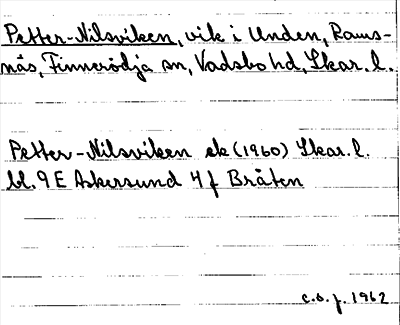 Petter-Nilsviken, vik i Unden, Rams-
näs, Finnerödja sn, Vadsbo hd, Skar. l.
Petter-Nilsviken ek (1960) Skar. l.
bl. 9 E Askersund 4 f Bråten
c.o.j. 1962